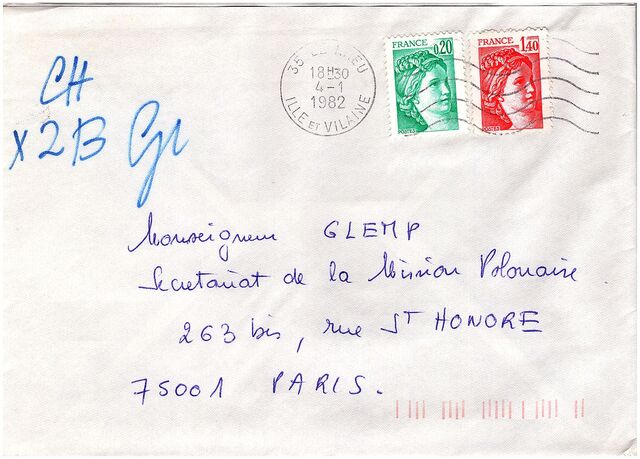 FRANCE 0,20
POSTES
FRANCE 1,40
POSTES
35 LE RHEU
18H30
4-1
1982
ILLE ET VILAINE
CH
x 2B Gl
Monseigneur GLEMP
Secretariat de la Mission Polonaise
263 bis, rue ST HONORE
75001 PARIS.